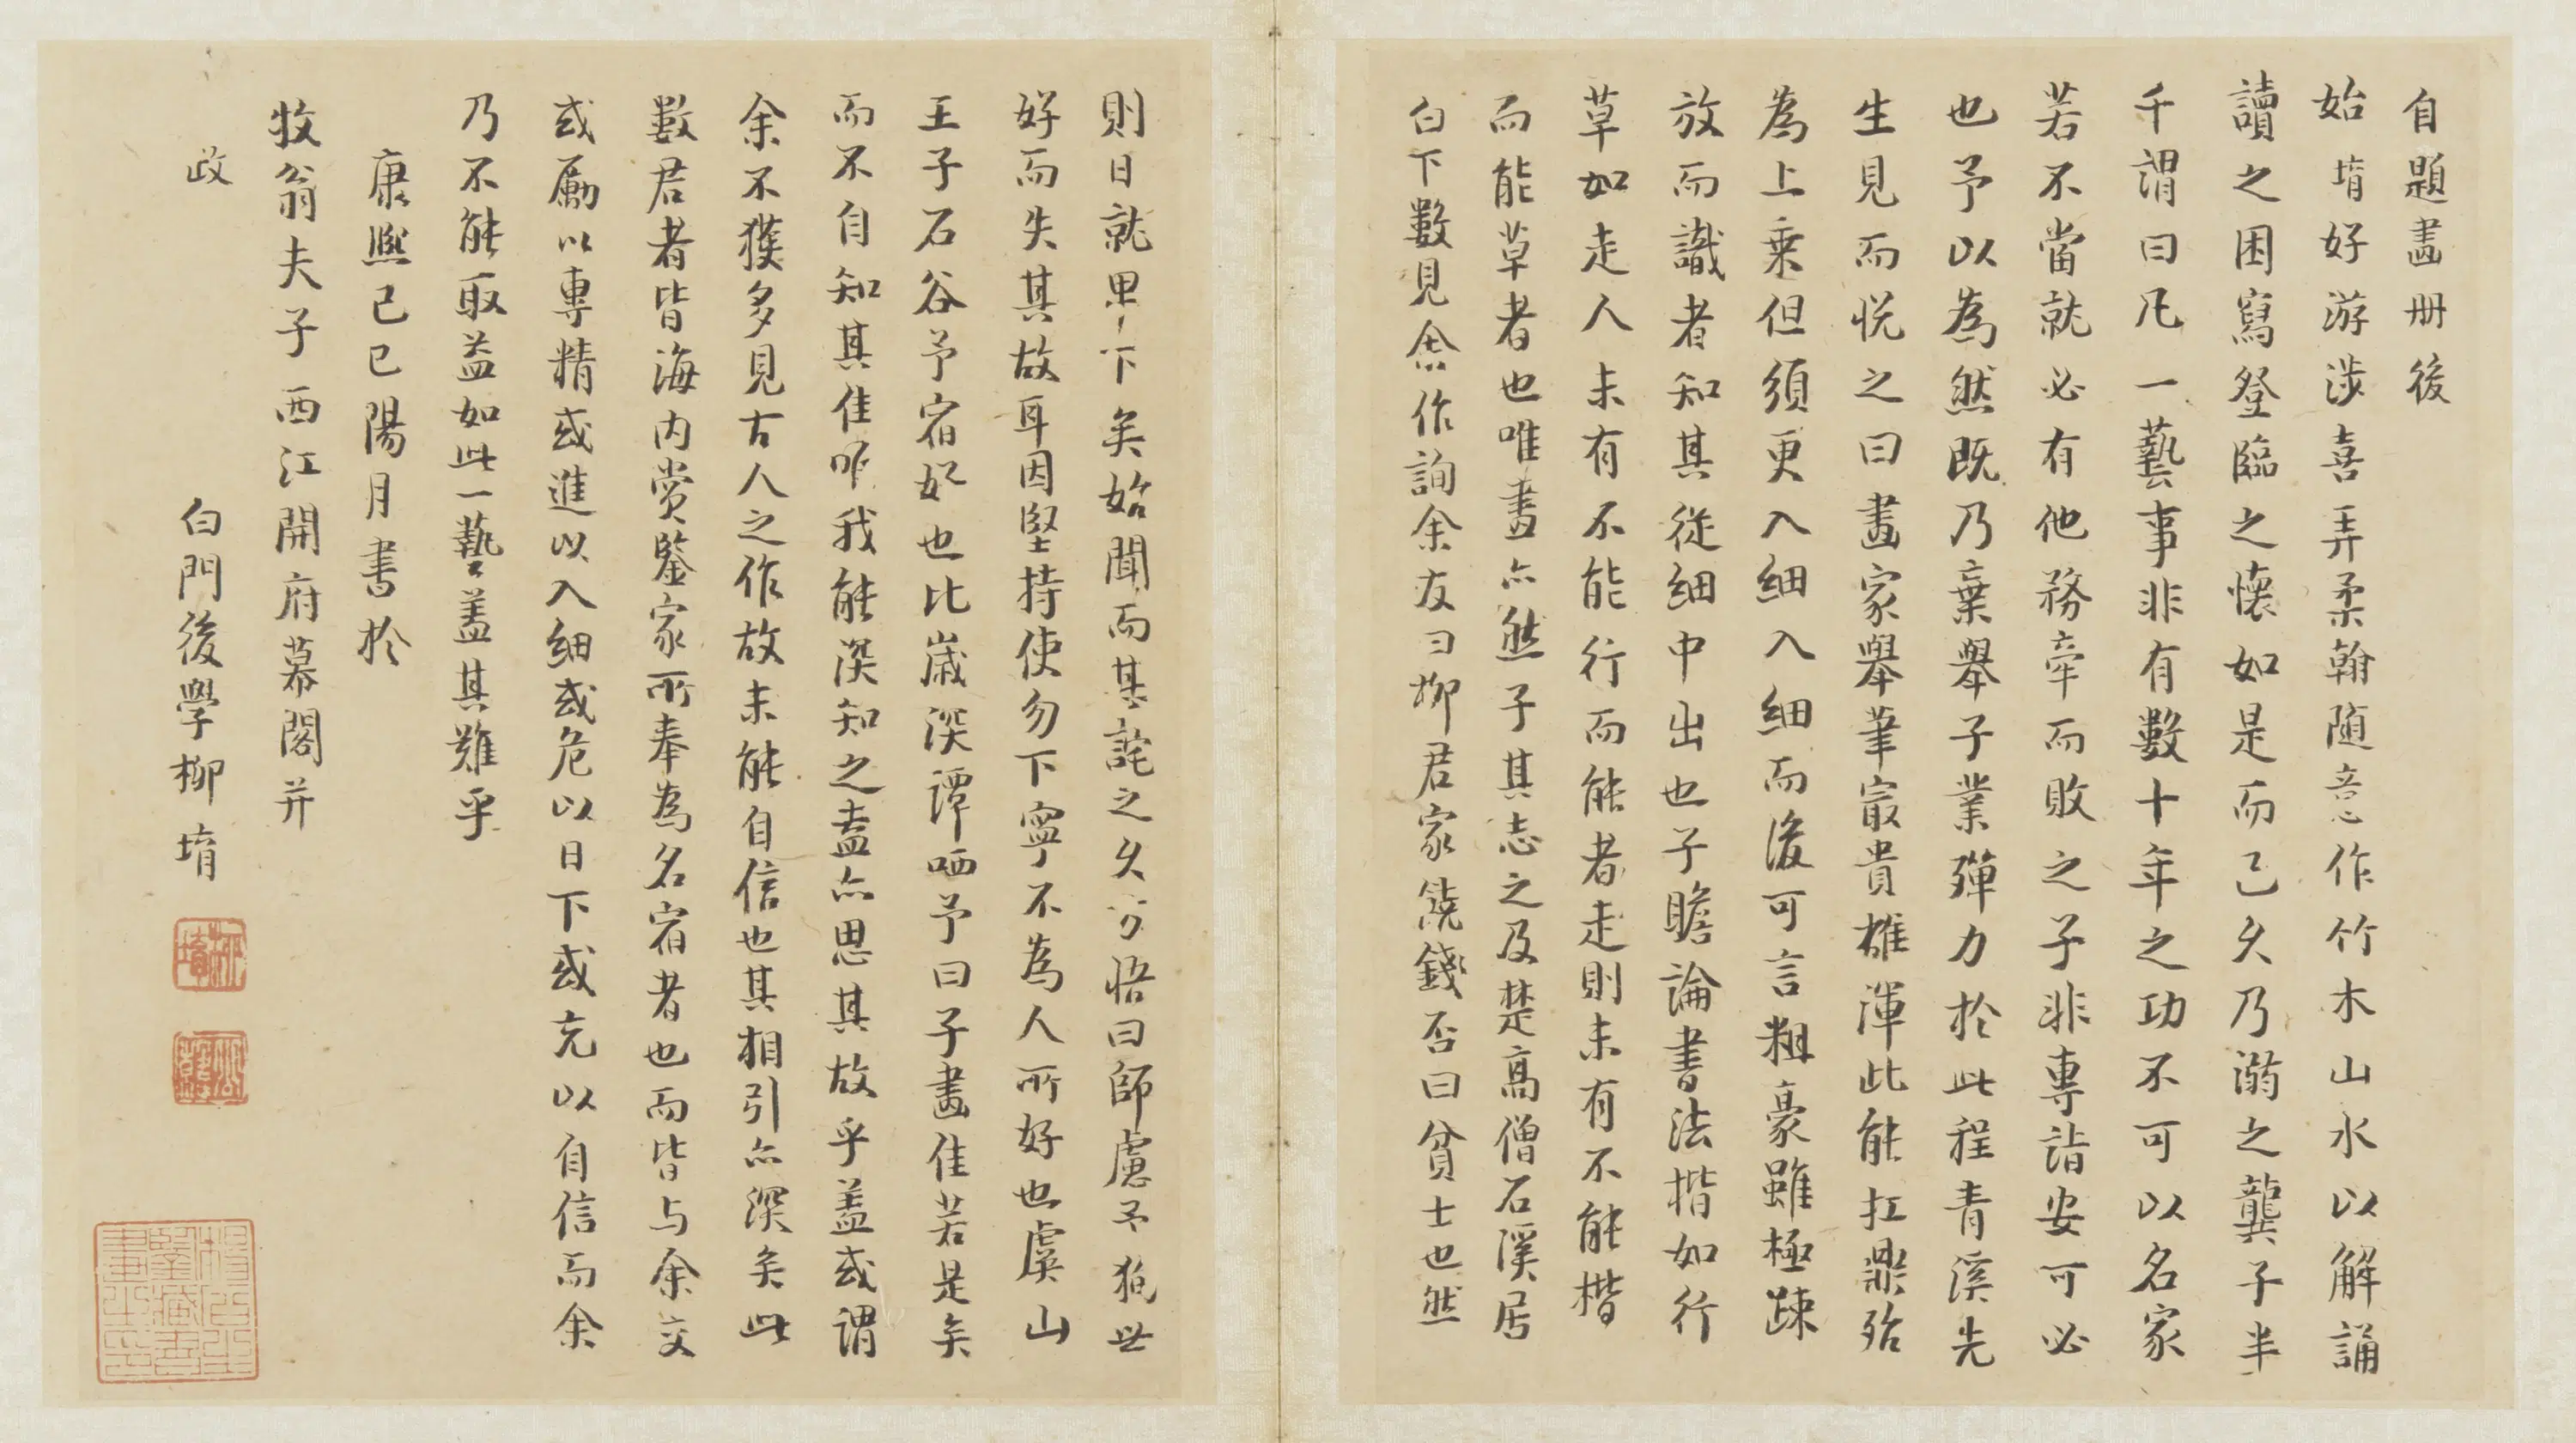 自題畫冊後
始堉好游涉喜弄柔翰随意作竹木山水以解誦
讀之困寫登臨之懷如是而已久乃溺之龔子半
千謂曰凡一藝事非有數十年之功不可以名家
若不當就必有他務牽而敗之子非專詣安可必
也予以為然既乃棄舉子業殫力於此程青溪先
生見而悦之曰畫家舉筆㝡貴雄渾此能扛鼎殆
為上乗但須更入細入細而後可言粗豪雖極踈
放而識者知其從細中出也子瞻論書法楷如行
草如走人未有不能行而能者走則未有不能楷
而能草者也唯畫亦然子其志之及楚髙僧石溪居
白下數見余作詢余友曰柳君家饒錢否曰貧士也然
則日就里下矣始聞而甚詫之久方悟曰師慮予狥世
好而失其故耳因堅持使勿下寧不為人所好也虞山
王子石谷予宿好也比嵗深譚哂予曰子畫佳若是矣
而不自知其佳唯我能深知之盍亦思其故乎盖或謂
余不獲多見古人之作故未能自信也其相引亦深矣此
數君者皆海内赏鑒家所奉為名宿者也而皆与余交
或勵以專精或進以入细或危以日下或充以自信而余
乃不能取益如此一藝盖其難乎
康熙己巳陽月書於
牧翁夫子西江開府幕閣并
政
白門後學柳堉
柳堉